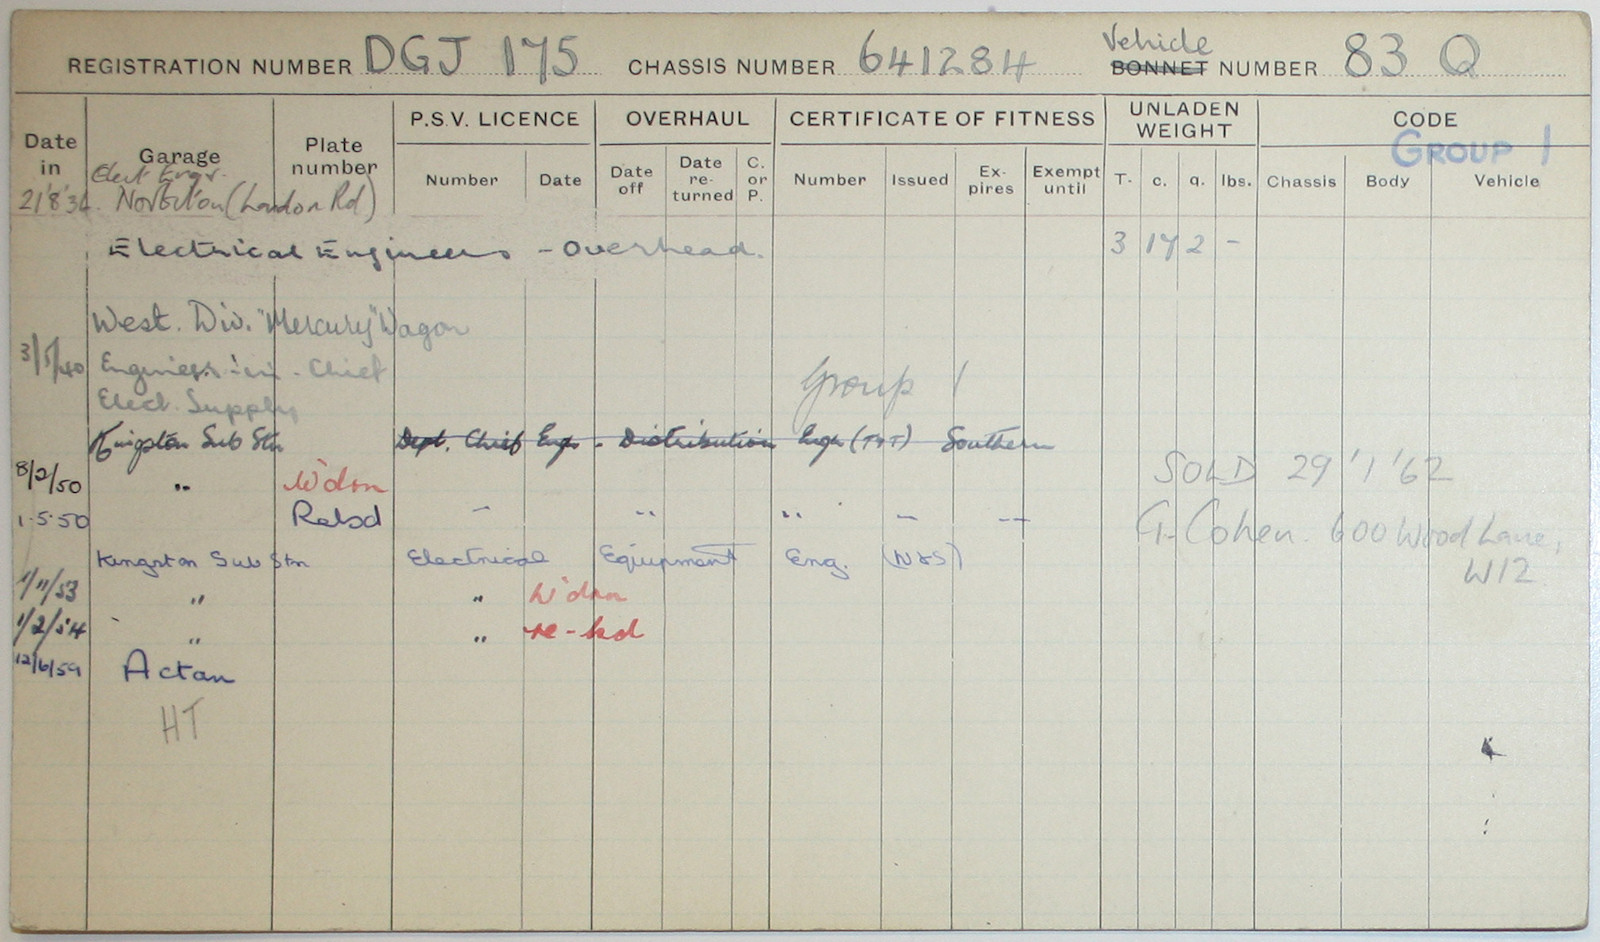 REGISTRATION NUMBER DGJ 175 CHASSIS NUMBER 641284 Vehicle BONNET NUMBER 83 Q
Date in Garage Plate number P.S.V. LICENCE OVERHAUL CERTIFICATE OF FITNESS UNLADEN WEIGHT CODE
GROUP 1
Number Date Date off Date re-turned C. or P. Number Issued Ex-pires Exempt until T. c. q. lbs. Chassis Body Vehicle
Elect Engr.
Norbiton (London Rd)
Electrical Engineers - Overhead. 3 17 2 -
West. Div. "Mercury" Wagon
3/5/40 Engineer-in-Chief Group 1
Elect. Supply
Kingston Sub Stn Dept. Chief Engr - Distribution Engr (T+T) Southern
SOLD 29'1'62
8/2/50 " W'drn
1.5.50 Relsd - " " - --
G. Cohen. 600 Wood Lane,
W12
Kingston Sub Stn Electrical Equipment Eng. (N&S)
1/11/53 " " W'drn
1/2/54 " " re-lsd
12/6/59 Acton
HT